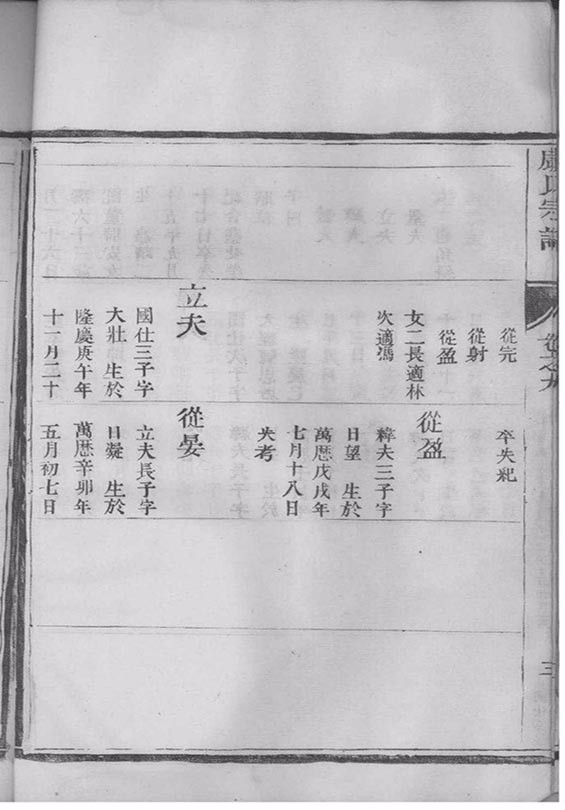 盧氏宗譜
卷之九
三
從完
從射
從盈
女二長適林
次適馮
立夫
國仕三子字
大壯 生於
隆慶庚午年
十一月二十
卒失紀
從盈
緯夫三子字
日望 生於
萬曆戊戌年
七月十八日
失考
從晏
立夫長子字
日凝 生於
萬曆辛卯年
五月初七日